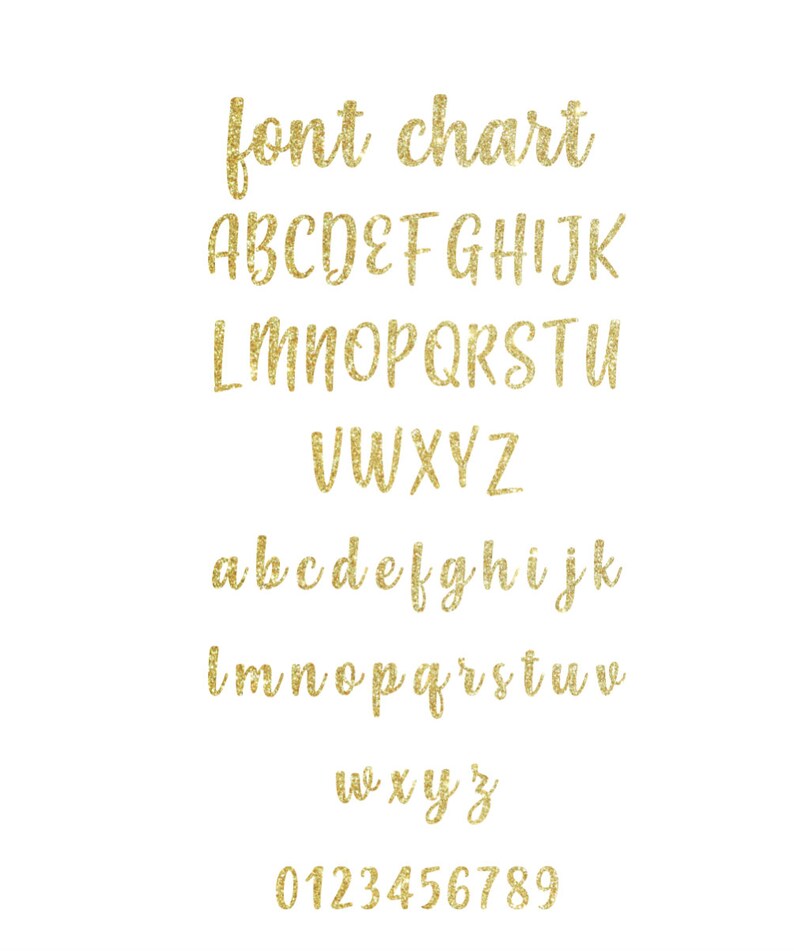 font chart
ABCDEFGHIJK
LMNOPQRSTU
VWXYZ
abcdefghijk
lmnopqrstuv
wxyz
0123456789